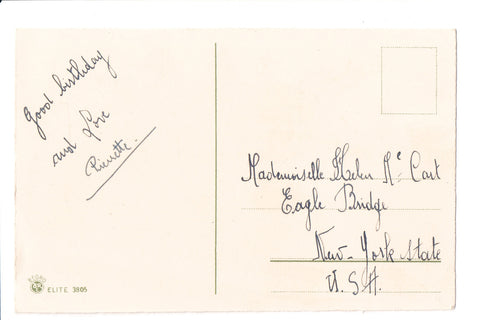 Good birthday
and Love
Pierrette.
Mademoiselle Helen Mc Cart
Eagle Bridge
New-York State
U.S.A.
ELITE 3805